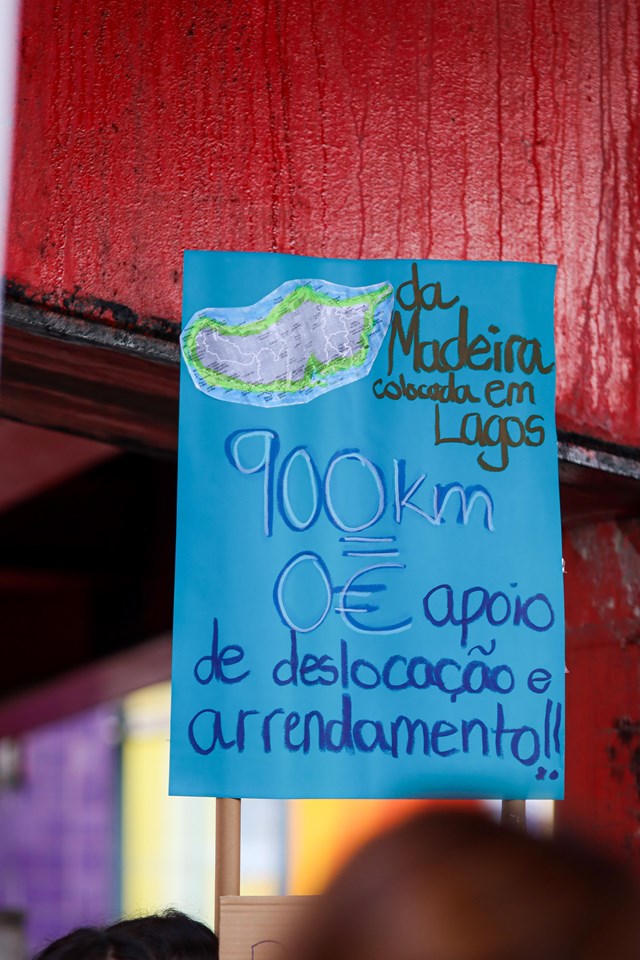 da
Madeira
colocada em
Lagos
900km
=
0€ apoio
de deslocação e
arrendamento!!